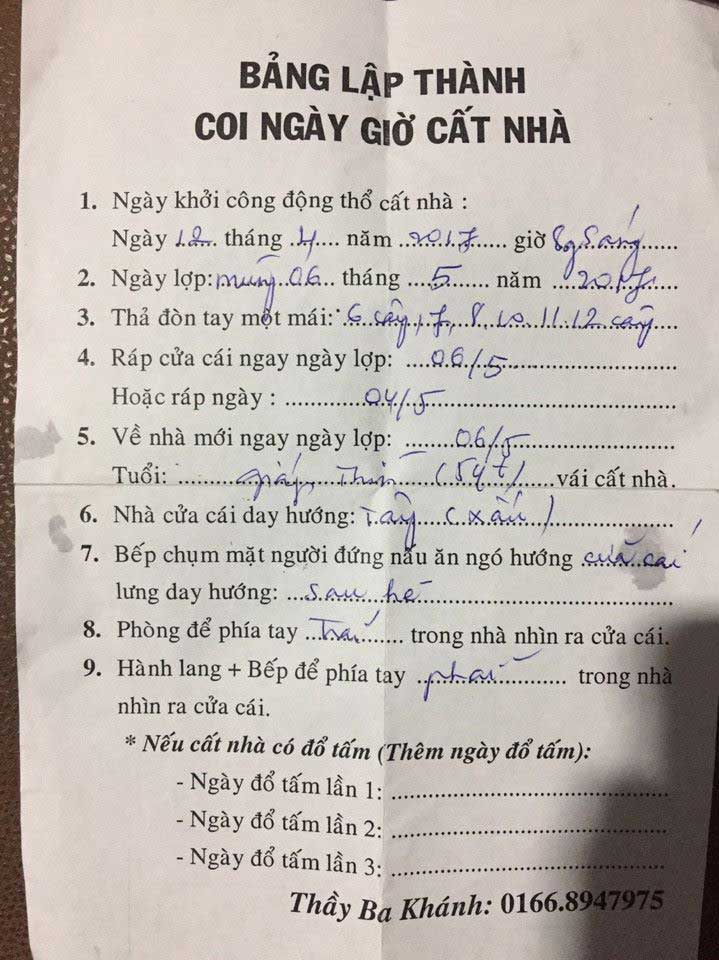 BẢNG LẬP THÀNH
COI NGÀY GIỜ CẤT NHÀ
1. Ngày khởi công động thổ cất nhà :
Ngày 12 tháng 4 năm 2017 giờ 8g sáng
2. Ngày lợp: mùng 06 tháng 5 năm 2017
3. Thả đòn tay một mái: 6 cây, 7, 8, 10, 11, 12 cây
4. Ráp cửa cái ngay ngày lợp: 06/5
Hoặc ráp ngày : 04/5
5. Về nhà mới ngay ngày lợp: 06/5
Tuổi: giáp Thìn (54t) vái cất nhà.
6. Nhà cửa cái day hướng: Tây (xấu)
7. Bếp chụm mặt người đứng nấu ăn ngó hướng cửa cái
lưng day hướng: sau hè
8. Phòng để phía tay Trái trong nhà nhìn ra cửa cái.
9. Hành lang + Bếp để phía tay phải trong nhà
nhìn ra cửa cái.
* Nếu cất nhà có đổ tấm (Thêm ngày đổ tấm):
- Ngày đổ tấm lần 1:
- Ngày đổ tấm lần 2:
- Ngày đổ tấm lần 3:
Thầy Ba Khánh: 0166.8947975